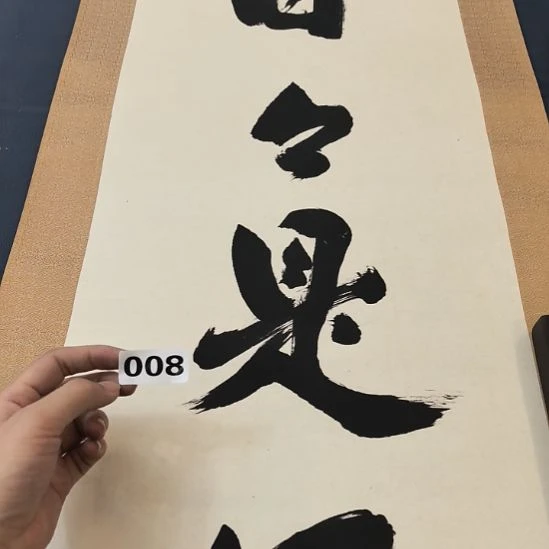 日々是好
008